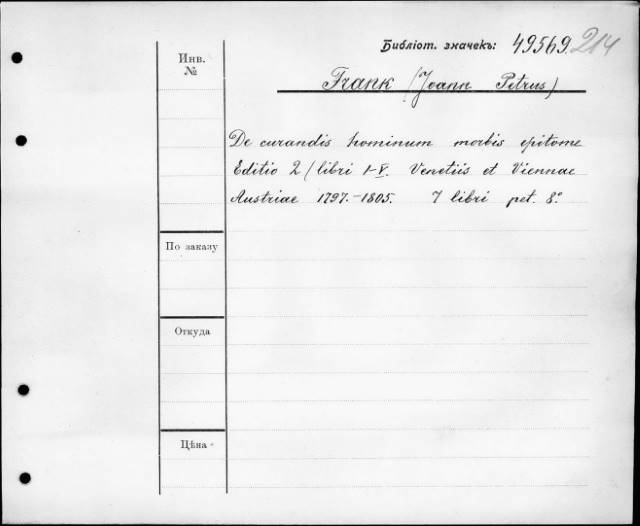 Библіот. значекъ: 49569. 214
Инв.
№
Frank (Joann Petrus)
De curandis hominum morbis epitome
Editio 2 (libri 1-V. Venetiis et Viennae
Austriae 1797.-1805. 7 libri pet. 8º
По заказу
Откуда
Цѣна